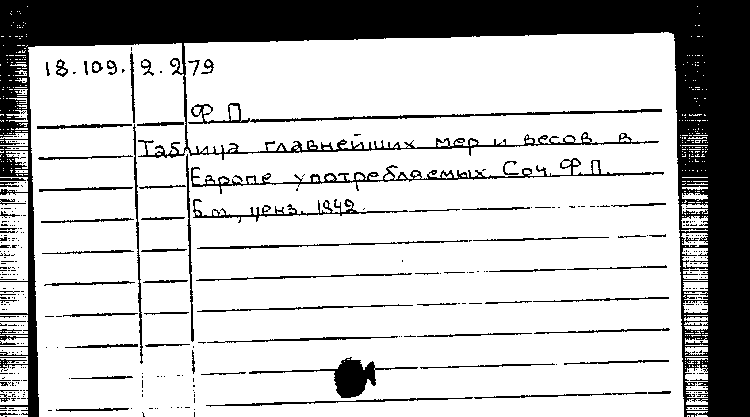 18.109. 2.279
Ф. П.
Таблица главнейших мер и весов в
Европе употребляемых. Соч. Ф. П.
Б.м., ценз. 1842.